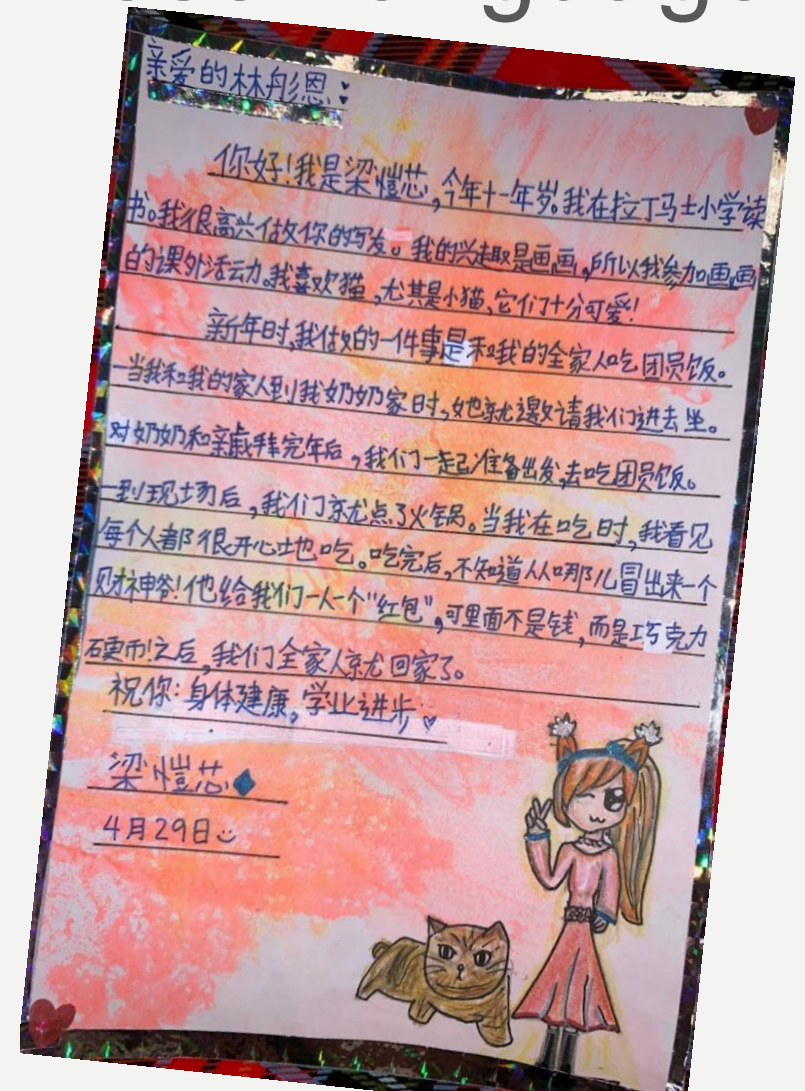 亲爱的林彤恩:
你好!我是梁恺芯,今年十一年岁。我在拉丁马士小学读
书。我很高兴做你的写友。我的兴趣是画画,所以我参加画画
的课外活动。我喜欢猫,尤其是小猫,它们十分可爱!
新年时,我做的一件事是和我的全家人吃团员饭。
一当我和我的家人到我奶奶家时,她就邀请我们进去坐。
对奶奶和亲戚拜完年后,我们一起准备出发,去吃团员饭。
一到现场后,我们就点了火锅。当我在吃时,我看见
每个人都很开心地吃。吃完后,不知道从哪儿冒出来一个
财神爷!他给我们一人一个"红包",可里面不是钱,而是巧克力
硬币!之后,我们全家人就回家了。
祝你:身体健康,学业进步
梁恺芯
4月29日